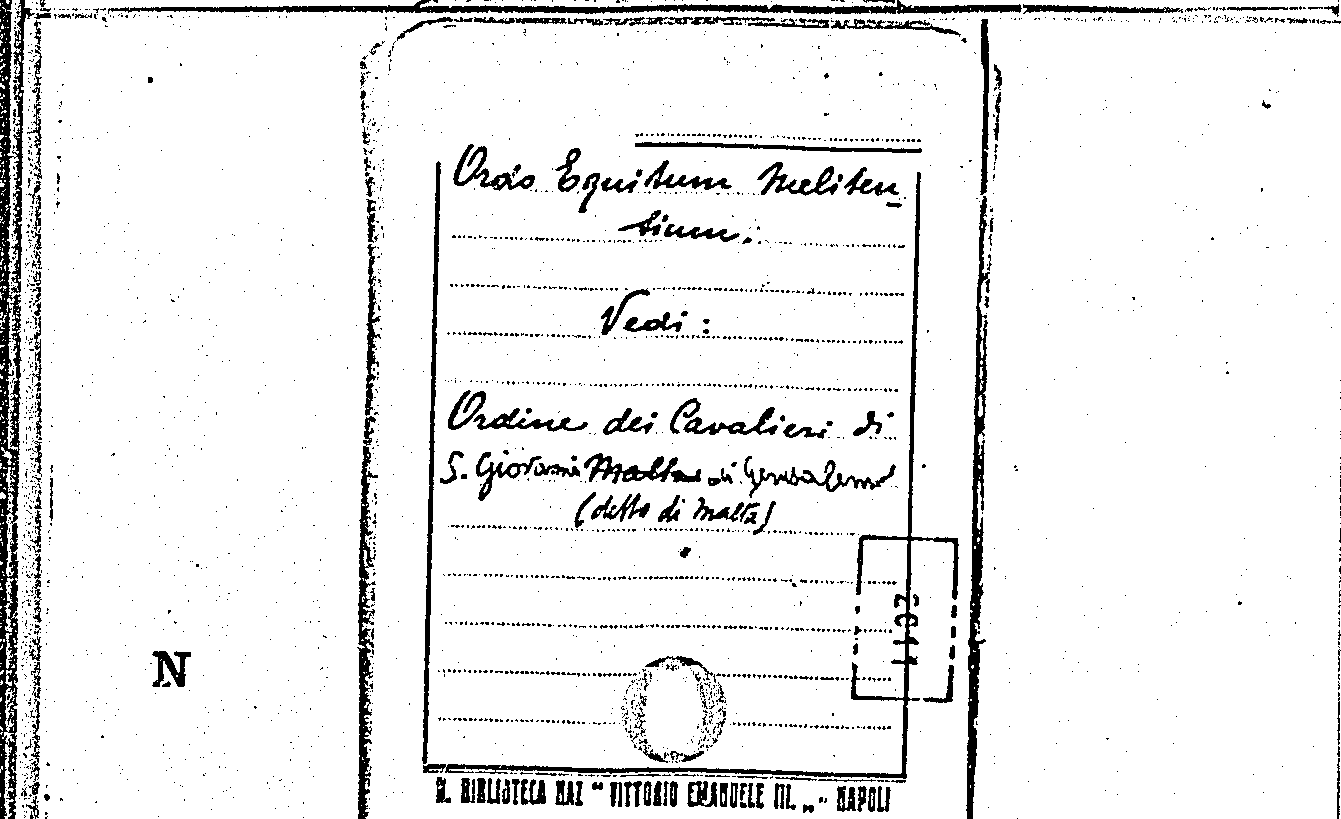 Ordo Equitum Meliten-
sium:
Vedi:
Ordine dei Cavalieri di
S. Giovanni Malta di Gerusalemme
(detto di Malta)
N
BIBLIOTECA NAZ "VITTORIO EMANUELE III." - NAPOLI